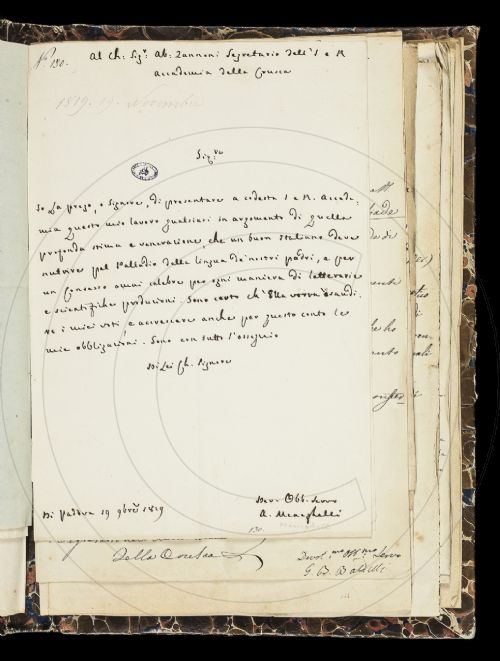 N.º 130.
Al Ch: Sig.r Ab: Zannoni Segretario dell'I e R
Accademia della Crusca
1819. 19. Novembre
Sig.re
Io La prego, o Signore, di presentare a codesta I e R. Accade-
mia questo mio lavoro qualsiasi in argomento di quella
profonda stima e venerazione, che un buon Italiano deve
nutrire pel Palladio della lingua de' nostri padri, e per
un Consesso omai celebre per ogni maniera di letterarie
e scientifiche produzioni. Sono certo ch'Ella vorrà esaudi-
re i miei voti, e accrescere anche per questo conto le
mie obbligazioni. Sono con tutto l'ossequio
Di Lei Ch. Signore
Di Padova 19 9bre 1819
Dev. Obb. Servo
A. Meneghelli
130
Della Crusca
Devot.mo Obb.mo Servo
G. B. Baldelli